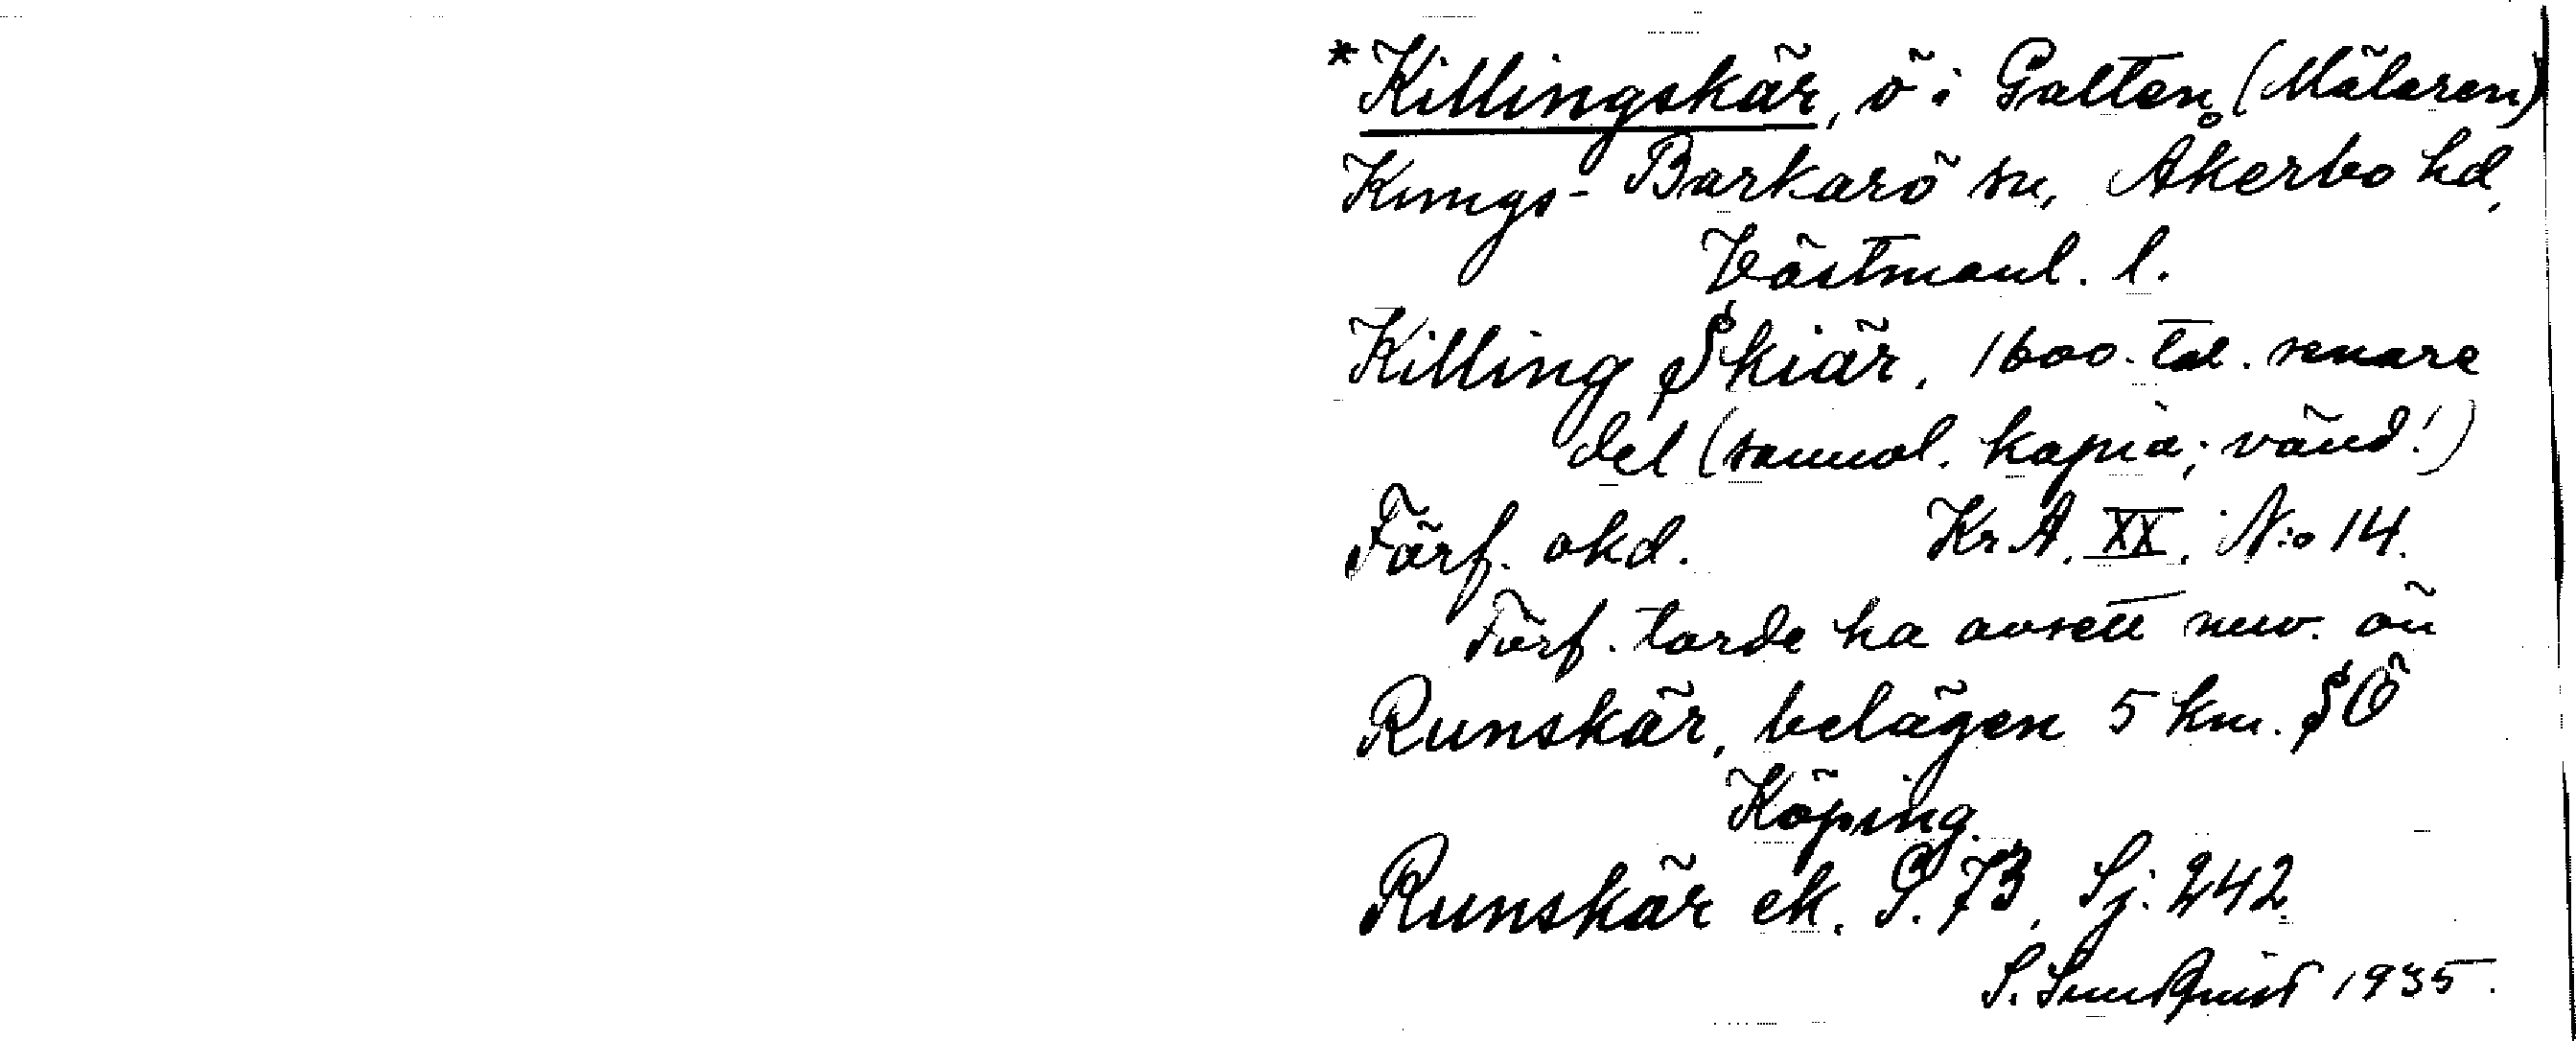 *Killingskär, ö i Galten (Mälaren)
Kungs-Barkarö sn, Åkerbo hd,
Västmanl. l.
Killing Skiär, 1600-tal. senare
del (sannol. kopia; vänd!)
Förf. okd. KrA. XX. N:o 14.
Förf. torde ha avsett nuv. ön
Runskär, belägen 5 km. SÖ
Köping.
Runskär ek. S. 73, Sj. 242.
S. 1935.